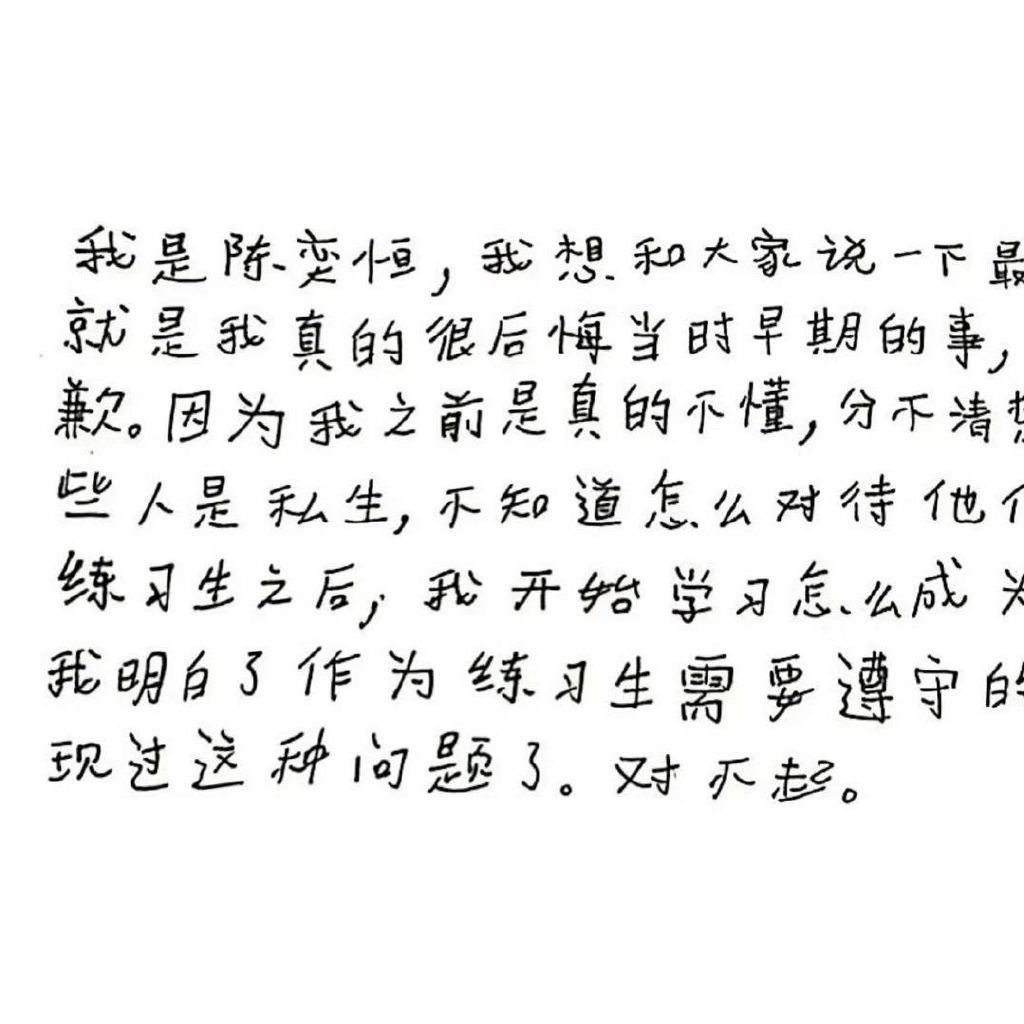 我是陈奕恒，我想和大家说一下最
就是我真的很后悔当时早期的事，
歉。因为我之前是真的不懂，分不清楚
些人是私生，不知道怎么对待他们
练习生之后，我开始学习怎么成为
我明白了作为练习生需要遵守的
现过这种问题了。对不起。